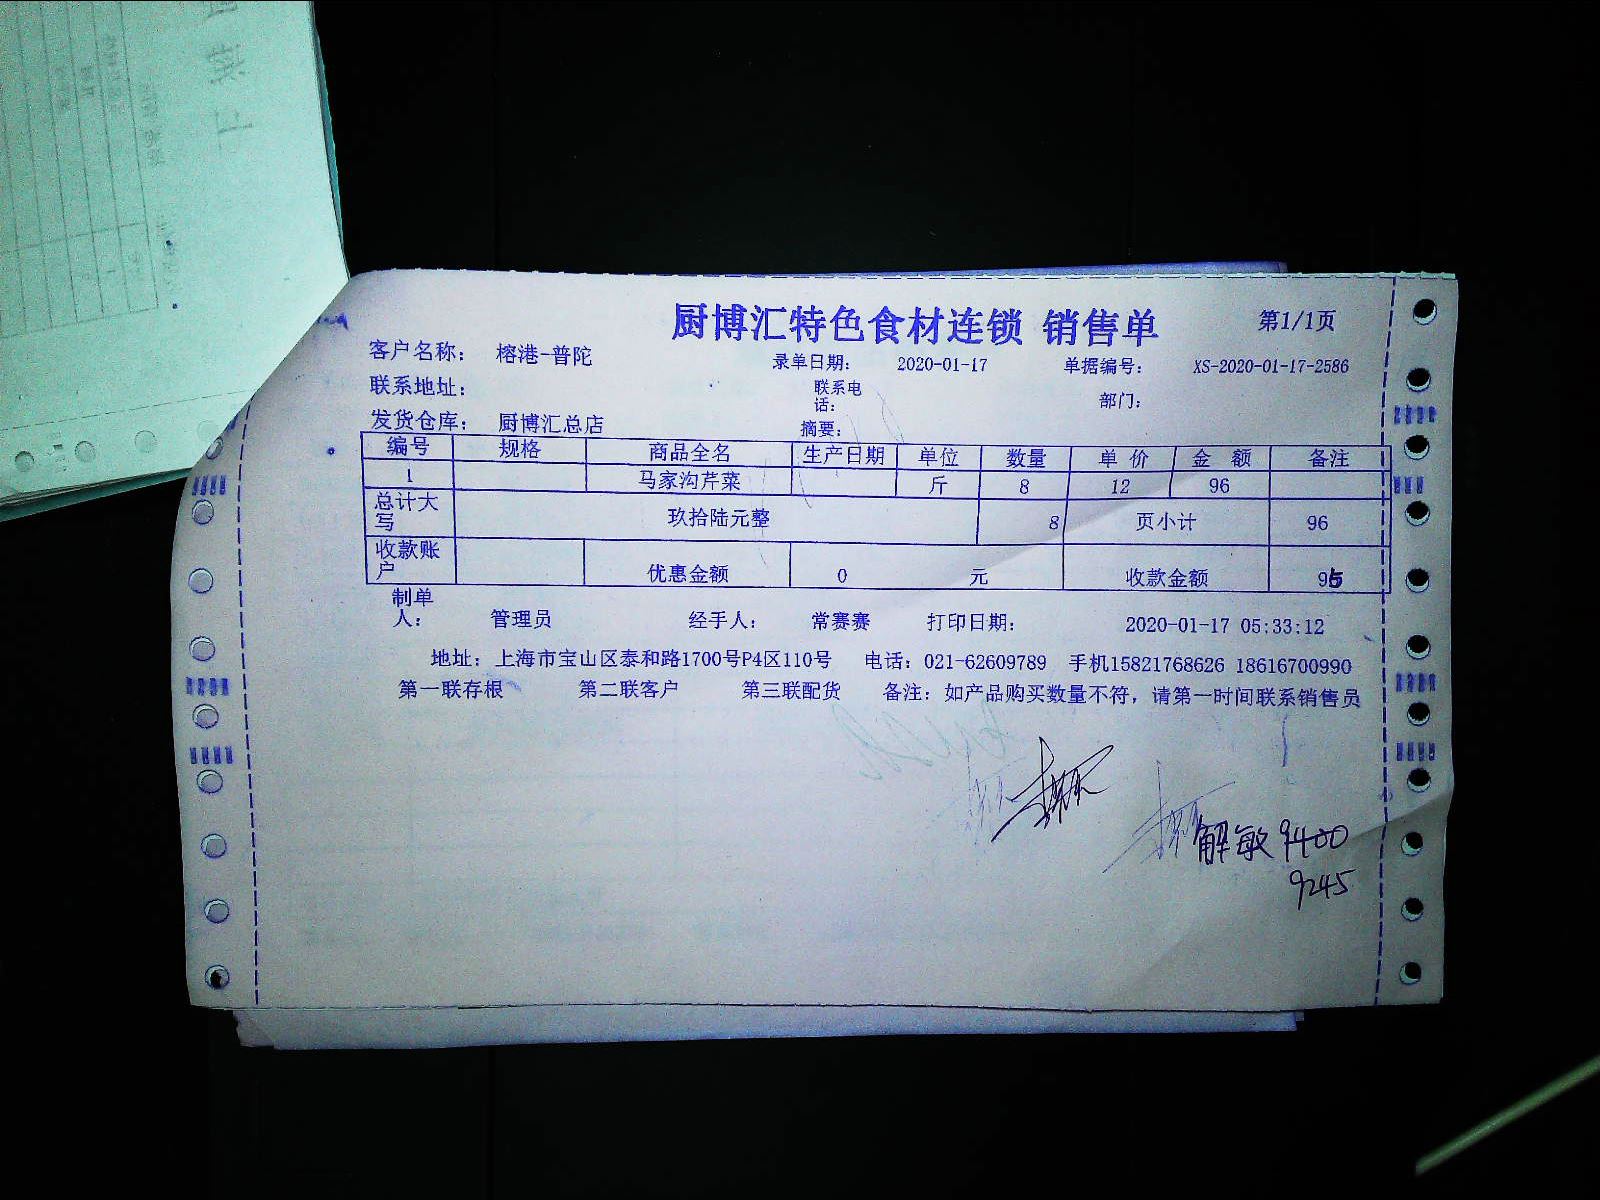 厨博汇特色食材连锁 销售单 第1/1页
客户名称: 榕港-普陀 录单日期: 2020-01-17 单据编号: XS-2020-01-17-2586
联系地址: 联系电话: 部门:
发货仓库: 厨博汇总店 摘要:
编号 规格 商品全名 生产日期 单位 数量 单 价 金 额 备注
1 马家沟芹菜 斤 8 12 96
总计大写 玖拾陆元整 8 页小计 96
收款账户 优惠金额 0 元 收款金额 95
制单人: 管理员 经手人: 常赛赛 打印日期: 2020-01-17 05:33:12
地址: 上海市宝山区泰和路1700号P4区110号 电话: 021-62609789 手机15821768626 18616700990
第一联存根 第二联客户 第三联配货 备注: 如产品购买数量不符, 请第一时间联系销售员
解敏 9400
9245